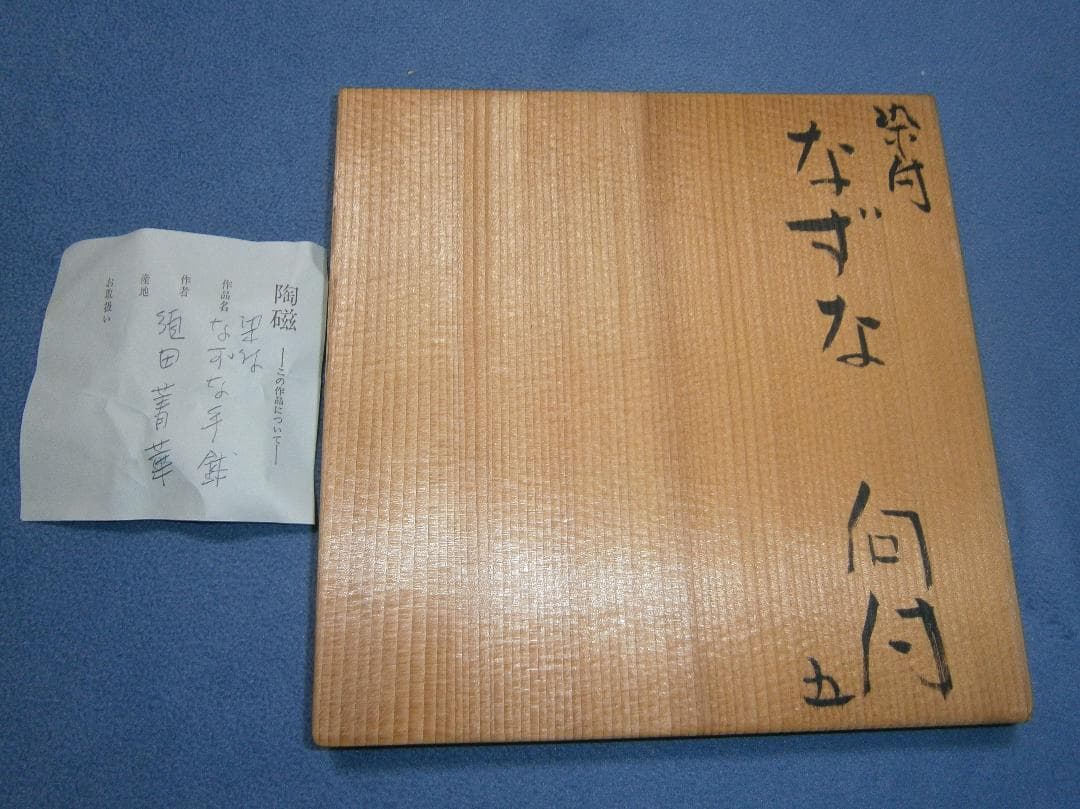 染付
なずな 向付
五
陶磁 ―この作品について―
作品名 染付
なずな手鉢
作者 須田菁華
産地
お取扱い